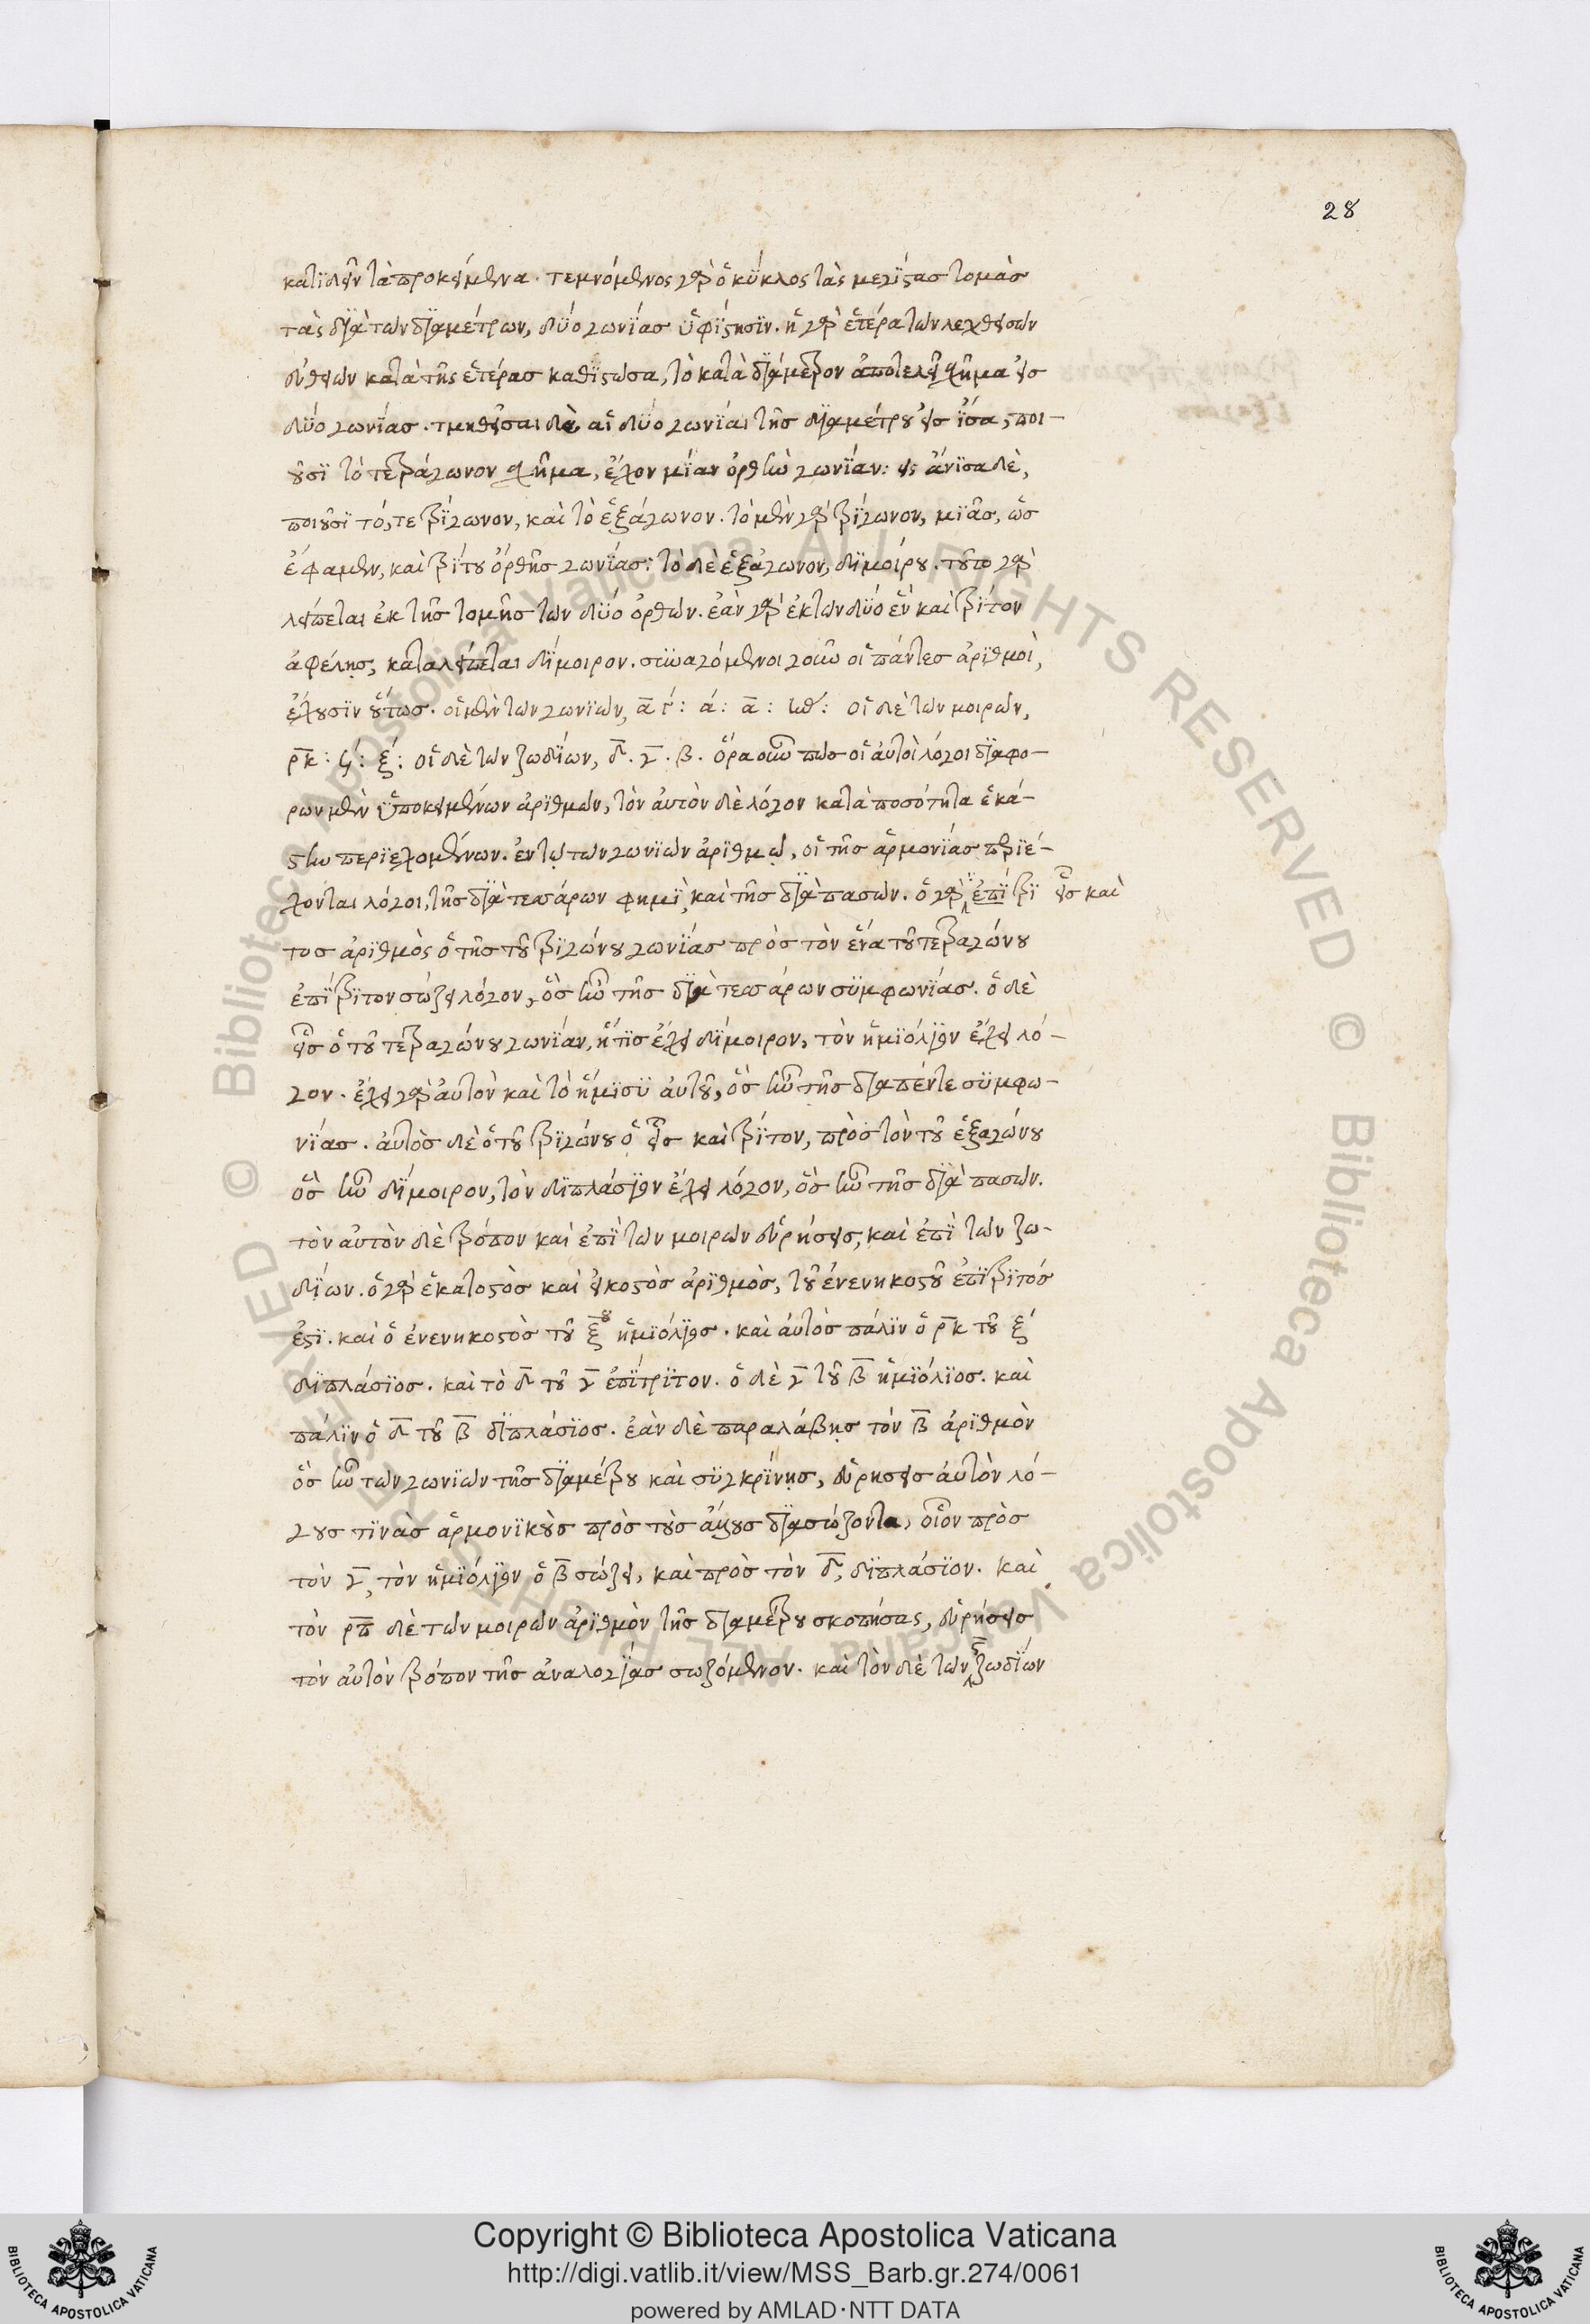 28
κατιδεῖν τὰ προκείμενα. τεμνόμενος γὰρ ὁ κύκλος τὰς μεγίστας τομὰς
τὰς διὰ τῶν διαμέτρων, δύο γωνίας ὑφίστησιν. ἡ γὰρ ἑτέρα τῶν λεχθεισῶν
εὐθειῶν κατὰ τῆς ἑτέρας καθιστῶσα, τὸ κατὰ διάμετρον ἀποτελεῖ σχῆμα εἰς
δύο γωνίας. τμηθεῖσαι δὲ αἱ δύο γωνίαι τῆς διαμέτρου εἰς ἴσα, ποι-
οῦσι τὸ τετράγωνον σχῆμα, ἔχον μίαν ὀρθὴν γωνίαν: εἰς ἄνισα δὲ,
ποιοῦσι τό, τε τρίγωνον, καὶ τὸ ἑξάγωνον. τὸ μὲν γὰρ τρίγωνον, μιᾶς, ὡς
ἔφαμεν, καὶ τρίτου ὀρθῆς γωνίας: τὸ δὲ ἑξάγωνον, διμοίρου. τοῦτο γὰρ
λείπεται ἐκ τῆς τομῆς τῶν δύο ὀρθῶν. ἐὰν γὰρ ἐκ τῶν δύο ἓν καὶ τρίτον
ἀφέλῃς, καταλείπεται δίμοιρον. συναγόμενοι γοῦν οἱ πάντες ἀριθμοὶ,
ἔχουσιν οὕτως. οἱ μὲν τῶν γωνιῶν, α γ΄: ά: α: : οἱ δὲ τῶν μοιρῶν,
ρκ: ϟ: ξ: οἱ δὲ τῶν ζωδίων, δ. γ. β. ὅρα οὖν πῶς οἱ αὐτοὶ λόγοι διαφό-
ρων μὲν ὑποκειμένων ἀριθμῶν, τὸν αὐτὸν δὲ λόγον κατὰ ποσότητα ἑκά-
στῳ περιεχομένων. ἐν τῷ τῶν γωνιῶν ἀριθμῷ, οἱ τῆς ἁρμονίας περιέ-
χονται λόγοι, τῆς διὰ τεσσάρων φημὶ, καὶ τῆς διὰ πασῶν. ὁ γὰρ ἐπίτρι εἷς καὶ
τος ἀριθμὸς ὁ τῆς τοῦ τριγώνου γωνίας πρὸς τὸν ἕνα τοῦ τετραγώνου
ἐπίτριτον σώζει λόγον, ὃς ἦν τῆς διὰ τεσσάρων συμφωνίας. ὁ δὲ
εἷς ὁ τοῦ τετραγώνου γωνίαν, ἥτις ἔχει δίμοιρον, τὸν ἡμιόλιον ἔχει λό-
γον. ἔχει γὰρ αὐτὸν καὶ τὸ ἥμισυ αὐτοῦ, ὃς ἦν τῆς διαπέντε συμφω-
νίας. αὐτὸς δὲ ὁ τοῦ τριγώνου ὁ εἷς καὶ τρίτον, πρὸς τὸν τοῦ ἑξαγώνου
ὃς ἦν δίμοιρον, τὸν διπλάσιον ἔχει λόγον, ὃς ἦν τῆς διὰ πασῶν.
τὸν αὐτὸν δὲ τρόπον καὶ ἐπὶ τῶν μοιρῶν εὑρήσεις, καὶ ἐπὶ τῶν ζω-
δίων. ὁ γὰρ ἑκατοστὸς καὶ εἰκοστὸς ἀριθμὸς, τοῦ ἐνενηκοστοῦ ἐπίτριτός
ἐστι. καὶ ὁ ἐνενηκοστὸς τοῦ ξου ἡμιόλιος. καὶ αὐτὸς πάλιν ὁ ρκ τοῦ ξ
διπλάσιος. καὶ τὸ δ τοῦ γ ἐπίτριτον. ὁ δὲ γ τοῦ β ἡμιόλιος. καὶ
πάλιν ὁ δ τοῦ β διπλάσιος. ἐὰν δὲ παραλάβῃς τὸν β ἀριθμὸν
ὃς ἦν τῶν γωνιῶν τῆς διαμέτρου καὶ συγκρίνῃς, εὑρήσεις αὐτὸν λό-
γους τινὰς ἁρμονικοὺς πρὸς τοὺς ἄλλους διασώζοντα, οἷον πρὸς
τὸν γ, τὸν ἡμιόλιον ὁ β σώζει, καὶ πρὸς τὸν δ, διπλάσιον. καὶ
τὸν ρπ δὲ τῶν μοιρῶν ἀριθμὸν τῆς διαμέτρου σκοπήσας, εὑρήσεις
τὸν αὐτὸν τρόπον τῆς ἀναλογίας σωζόμενον. καὶ τὸν δὲ τῶν ζωδίων
Copyright © Biblioteca Apostolica Vaticana
http://digi.vatlib.it/view/MSS_Barb.gr.274/0061
powered by AMLAD·NTT DATA